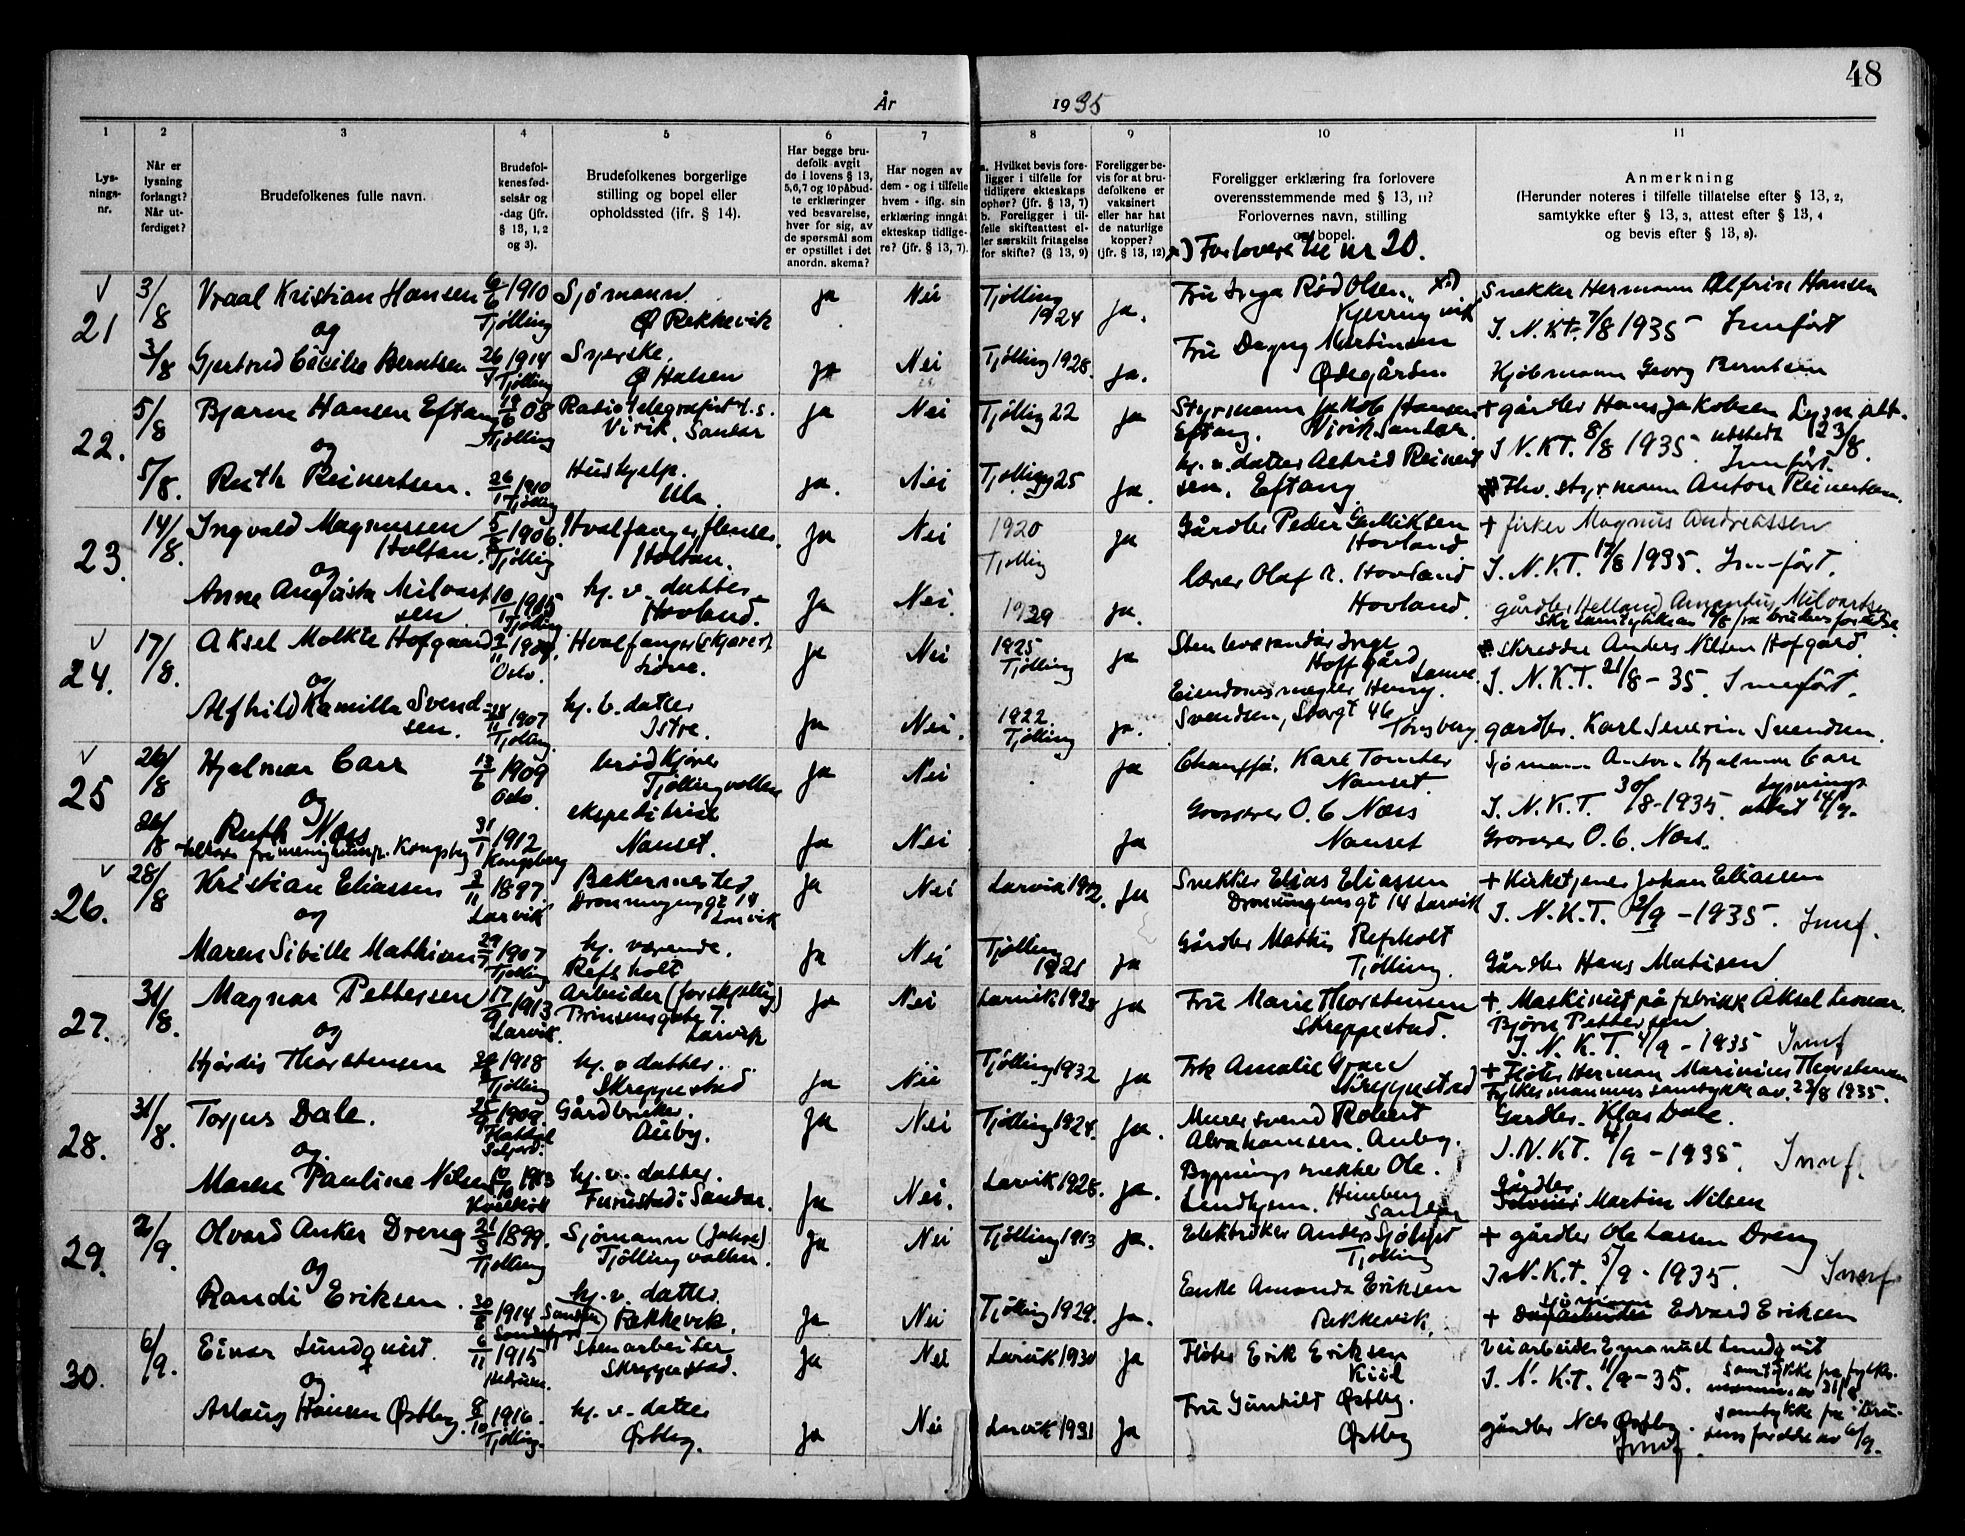 48
År 1935
1 2 3 4 5 6 7 8 9 10 11
Lysningsnr.
Når er lysning forlangt? Når utferdiget?
Brudefolkenes fulle navn.
Brudefolkenes fødselsår og -dag (jfr. § 13, 1, 2 og 3).
Brudefolkenes borgerlige stilling og bopel eller opholdssted (jfr. § 14).
Har begge brudefolk avgit de i lovens § 13, 5,6,7 og 10 påbudte erklæringer ved besvarelse, hver for sig, av de spørsmål som er opstillet i det anordn. skema?
Har nogen av dem - og i tilfelle hvem - iflg. sin erklæring inngått ekteskap tidligere? (jfr. § 13, 7).
a. Hvilket bevis foreligger i tilfelle for tidligere ekteskaps ophør? (jfr. § 13, 7) b. Foreligger i tilfelle skifteattest eller særskilt fritagelse for skifte? (§ 13, 9)
Foreligger bevis for at brudefolkene er vaksinert eller har hat de naturlige kopper? (jfr. § 13, 12)
Foreligger erklæring fra forlovere overensstemmende med § 13, 11? Forlovernes navn, stilling og bopel.
x) Forlovere til nr 20.
Anmerkning
(Herunder noteres i tilfelle tillatelse efter § 13, 2, samtykke efter § 13, 3, attest efter § 13, 4 og bevis efter § 13, 8).
21 3/8 Vraal Kristian Hansen 6/6 1910 Tjølling Sjømann Ø Rekkevik ja Nei Tjølling 1924 ja. Fru Inga Rød Olsen x) Kjerringvik Snekker Hermann Alfrin Hansen
og I. N. Kt. 7/8 1935 Innført
3/8 Gjertrud Cecilie Berntsen 26/4 1914 Tjølling Syerske Ø Halsen ja Nei Tjølling 1928. ja. Fru Dagny Martinsen Ødegården Kjøbmann Georg Berntsen
22. 5/8 Bjarne Hansen Eftang 19/6 08 Tjølling Radiotelegrafist Virik, Sandar ja Nei Tjøllig 22 ja Styrmann Jakob Hansen Eftang. Virik Sandar. + gårdbr Hans Jakobsen
og I N. KT. 8/8 1935. Lysn att. utstedt 23/8. Innført.
5/8. Ruth Reinertsen. 26/1 1910 Tjølling Hushjelp. Ula ja. Nei Tjølling 25 ja. hj. v. datter Astrid Reinertsen. Eftang. Fhv. styrmann Anton Reinertsen.
23. 14/8. Ingvald Magnussen Holtan. 5/5 1906 Tjølling Hvalfanger flenser. Holtan. ja Nei 1920 Tjølling ja Gårdbr Peder Hovland + fisker Magnus Andreassen
og I. N. KT. 17/8 1935. Innført.
Anne Augusta Milvartsen 10/1 1915 Tjølling hj. v. datter Hovland. ja Nei. 1929 ja. lærer Olaf A. Hovland Hovland. gårdbr Helland Amandus Milvartsen
24. 17/8. Aksel Moltke Hofgaard Oslo. Hvalfanger ja Nei 1925 Tjølling ja Inge Hoffgård skredder Anders Nilsen Hofgård.
og I. N. K.T. 21/8 - 35. Innført.
Alfhild Kamilla Svendsen. 1907 Tjølling hj. v. datter Istre. ja Nei. 1922. Tjølling ja. Eiendomsmegler Henry Svendsen, Storgt 46 Tønsberg. gardbr. Karl Severin Svendsen.
25 26/8 Hjalmar Carr 13/6 1909 Oslo. brødkjører Tjøllingvollen ja Nei ja Karl Tomter Nanset. Sjømann Anton Hjalmar Carr
og I. N. K. T. 30/8-1935. Lysnings attest 14/9.
26/8 Ruth Næss 31/1 1912 Kongsberg ekspeditrise Nanset. ja Nei ja Grosserer O. C. Næss Nanset Grosserer O. C. Næss.
26. 28/8 Kristian Eliassen 1897. Larvik Bakermester Dronningensgt 14 Larvik ja Nei Larvik ja Snekker Elias Eliassen Dronningensgt 14 Larvik + Kirketjener Johan Eliassen
og I. N. K. T. 2/9 - 1935. Innf.
Maren Sibille Mathisen 1907 Tjølling hj. værende. Refsholt ja Nei Tjølling 1921 ja Gårdbr Mathis Refsholt Tjølling. Gårdbr Hans Matisen
27. 31/8. Magnar Pettersen 17/9 1913 Larvik. Arbeider (forskjellig) Prinsensgate 7. Larvik ja Nei Larvik 1928 ja Fru Marie Thorstensen Skreppestad. + Maskinist på fabrikk Aksel Leonar. Bjørn Pettersen
og I. N. K. T. 4/9 - 1935 Innf
Hjørdis Thorstensen 1918 Tjølling hj. v datter. Skreppestad ja Nei Tjølling 1932 ja Frk Amalie Skreppestad + Fløter Herman Marinius Thorstensen Fylkesmannens samtykke av. 23/8 1935.
28. 31/8. Torjus Dale. 1909. Gårdbruker. Auby. ja Nei Tjølling 1924. ja. Murersvend Robert Abrahamsen. Auby. Gardbr. Klas Dale.
og I. N. KT. 4/9 - 1935. Innf.
Maren Pauline Nilsen 1913 hj. v. datter. Furustad i Sandar. ja Nei. Larvik 1928. ja. Bygningssnekker Ole Lindhjem. Himberg Sandar gårdbr Martin Nilsen
29. 2/9. Olvard Anker Dreng 1899. Tjølling Sjømann Tjøllingvollen. ja Nei Tjølling 1913 ja. Elektriker Anders Tjølling + gårdbr Ole Larsen Dreng
og I. N. K. T. 5/9 - 1935. Innf
Randi Eriksen. 30/8 1914 hj. v. datter Rekkevik. ja Nei Tjølling 1929. ja. Enke Amanda Eriksen Rekkevik. + sjømann Edvard Eriksen
30. 6/9. Einar Lundquist. 6/11 1915 Hedrum. Stenarbeiter Skreppestad. ja Nei Larvik 1930 ja Fløter Erik Eriksen Veiarbeider Emanuel Lundquist
og I. N. K.T. 11/9 - 35. samtykke fra fylkesmannen av
Aslaug Hansen Østby. 8/10 1916. Tjølling. hj. v. datter Østby. ja Nei Larvik 1931 ja Fru Gunhild Østby. Østby gårdbr Nils Østby. samtykke fra brudens foreldre av 6/9. Innf.